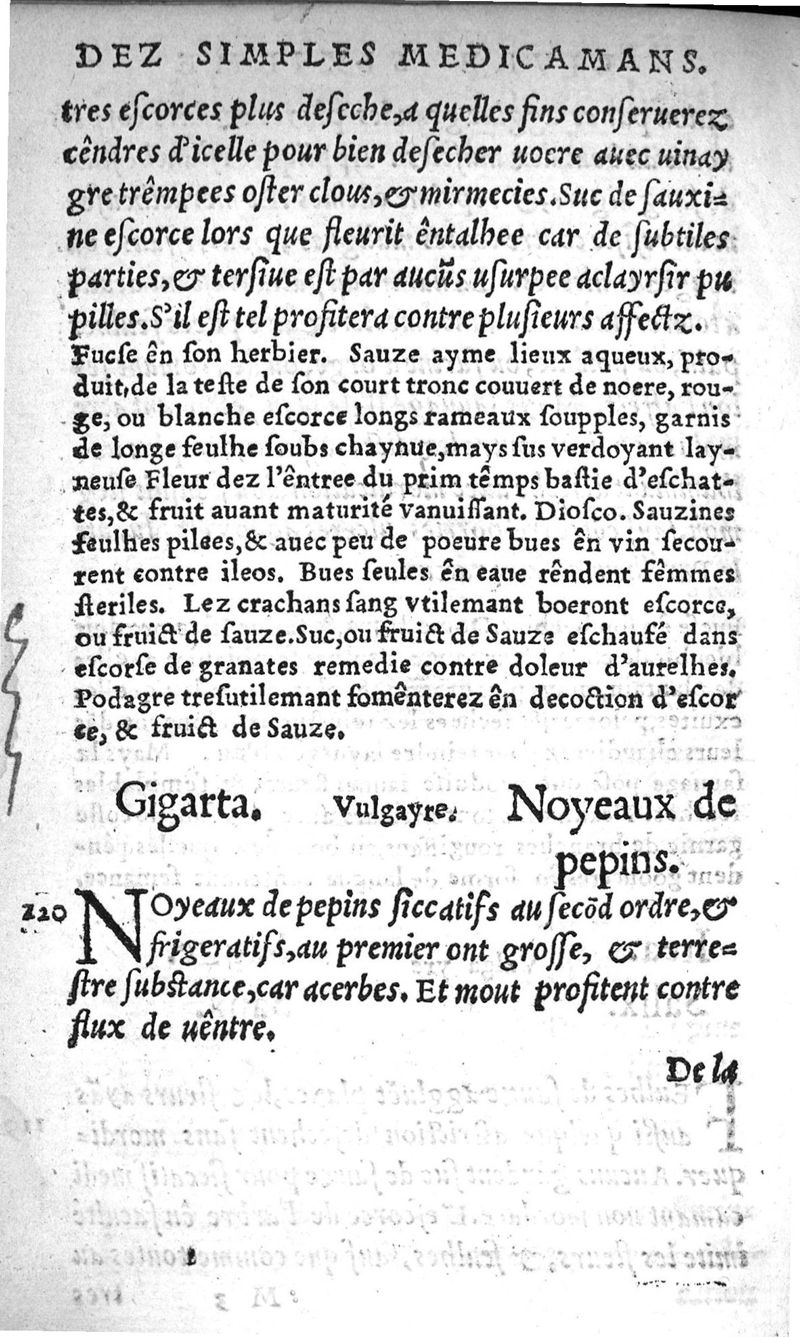 DEZ SIMPLES MEDICAMANS.
tres eſcorces plus deſeche,a quelles fins conſeruerez
cêndres d'icelle pour bien deſecher uocre auec uinay
gre trêmpees oſter clous,& mirmecies.Suc de ſauxi=
ne eſcorce lors que fleurit êntalhee car de ſubtiles
parties,& terſiue eſt par aucũs uſurpee aclayrſir pu
pilles.S'il eſt tel profitera contre pluſieurs affectz.
Fucſe ên ſon herbier. Sauze ayme lieux aqueux, pro-
duit,de la teſte de ſon court tronc couuert de noere, rou-
ge, ou blanche eſcorce longs rameaux ſoupples, garnis
de longe feulhe ſoubs chaynue,mays ſus verdoyant lay-
neuſe Fleur dez l'êntree du prim têmps baſtie d'eſchat-
tes,& fruit auant maturité vanuiſſant. Dioſco. Sauzines
feulhes pilees,& auec peu de poeure bues ên vin ſecou-
rent contre ileos. Bues ſeules ên eaue rêndent fêmmes
ſteriles. Lez crachans ſang vtilemant boeront eſcorce,
ou fruict de ſauze.Suc,ou fruict de Sauze eſchaufé dans
eſcorſe de granates remedie contre doleur d'aurelhes.
Podagre treſutilemant fomênterez ên decoction d'eſcor
ce, & fruict de Sauze.
Gigarta. Vulgayre. Noyeaux de
pepins.
220 NOyeaux de pepins ſiccatifs au ſecõd ordre,&
frigeratifs,au premier ont groſſe, & terre=
ſtre ſubſtance,car acerbes. Et mout profitent contre
flux de uêntre.
De la